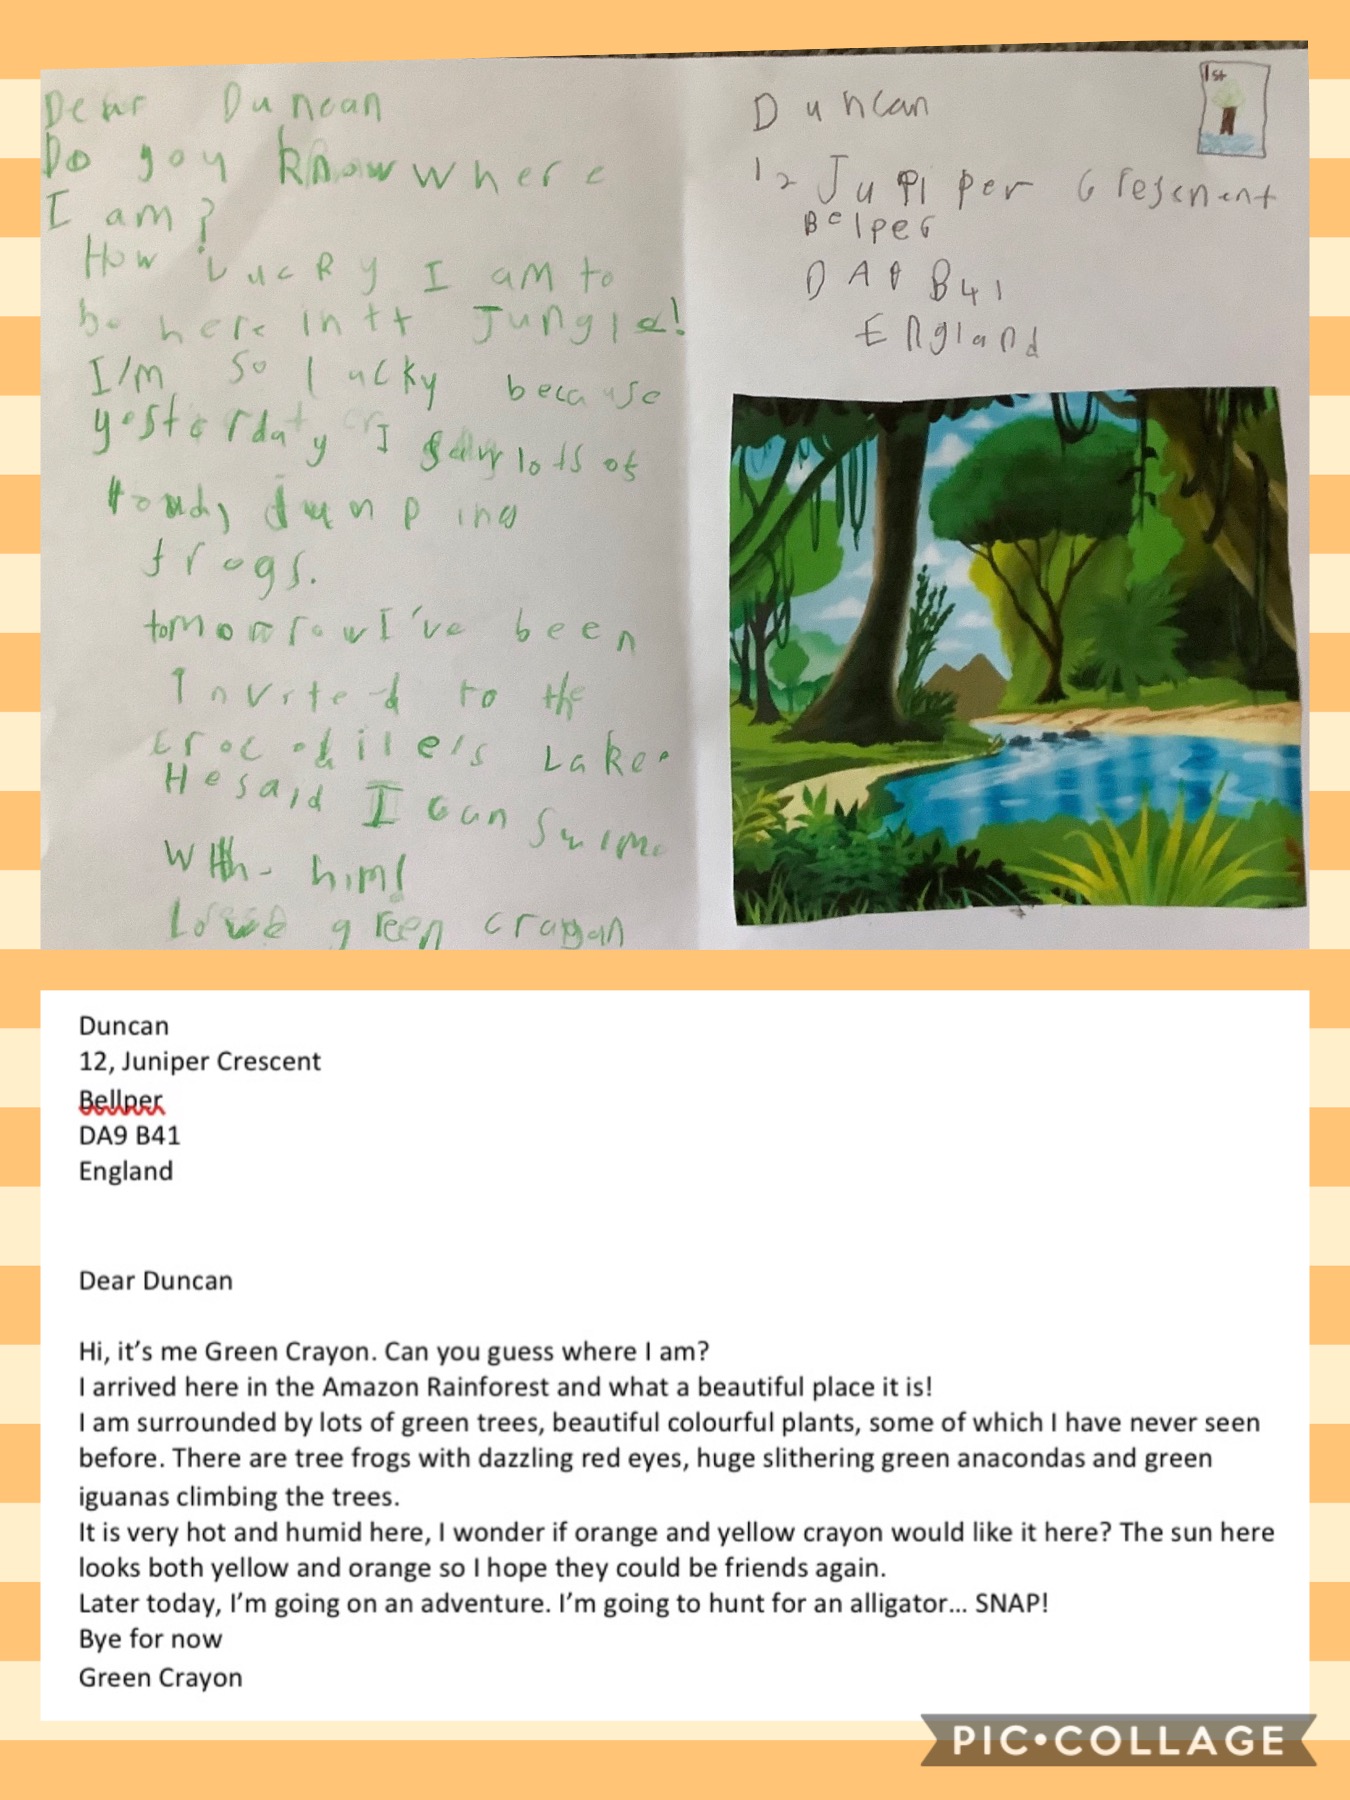 Dear Duncan
Do you know where
I am?
How Lucky I am to
be here in tt Jungle!
I'm so lucky because
yesterday I saw lots of
jumping
frogs.
tomorrow I've been
Invited to the
crocodile's Lake.
He said I can swim
with him!
Love green crayan
1st
Duncan
12 Juniper Cresenent
Belper
DA9 B41
England
Duncan
12, Juniper Crescent
Bellper
DA9 B41
England
Dear Duncan
Hi, it's me Green Crayon. Can you guess where I am?
I arrived here in the Amazon Rainforest and what a beautiful place it is!
I am surrounded by lots of green trees, beautiful colourful plants, some of which I have never seen
before. There are tree frogs with dazzling red eyes, huge slithering green anacondas and green
iguanas climbing the trees.
It is very hot and humid here, I wonder if orange and yellow crayon would like it here? The sun here
looks both yellow and orange so I hope they could be friends again.
Later today, I'm going on an adventure. I'm going to hunt for an alligator… SNAP!
Bye for now
Green Crayon
PIC•COLLAGE